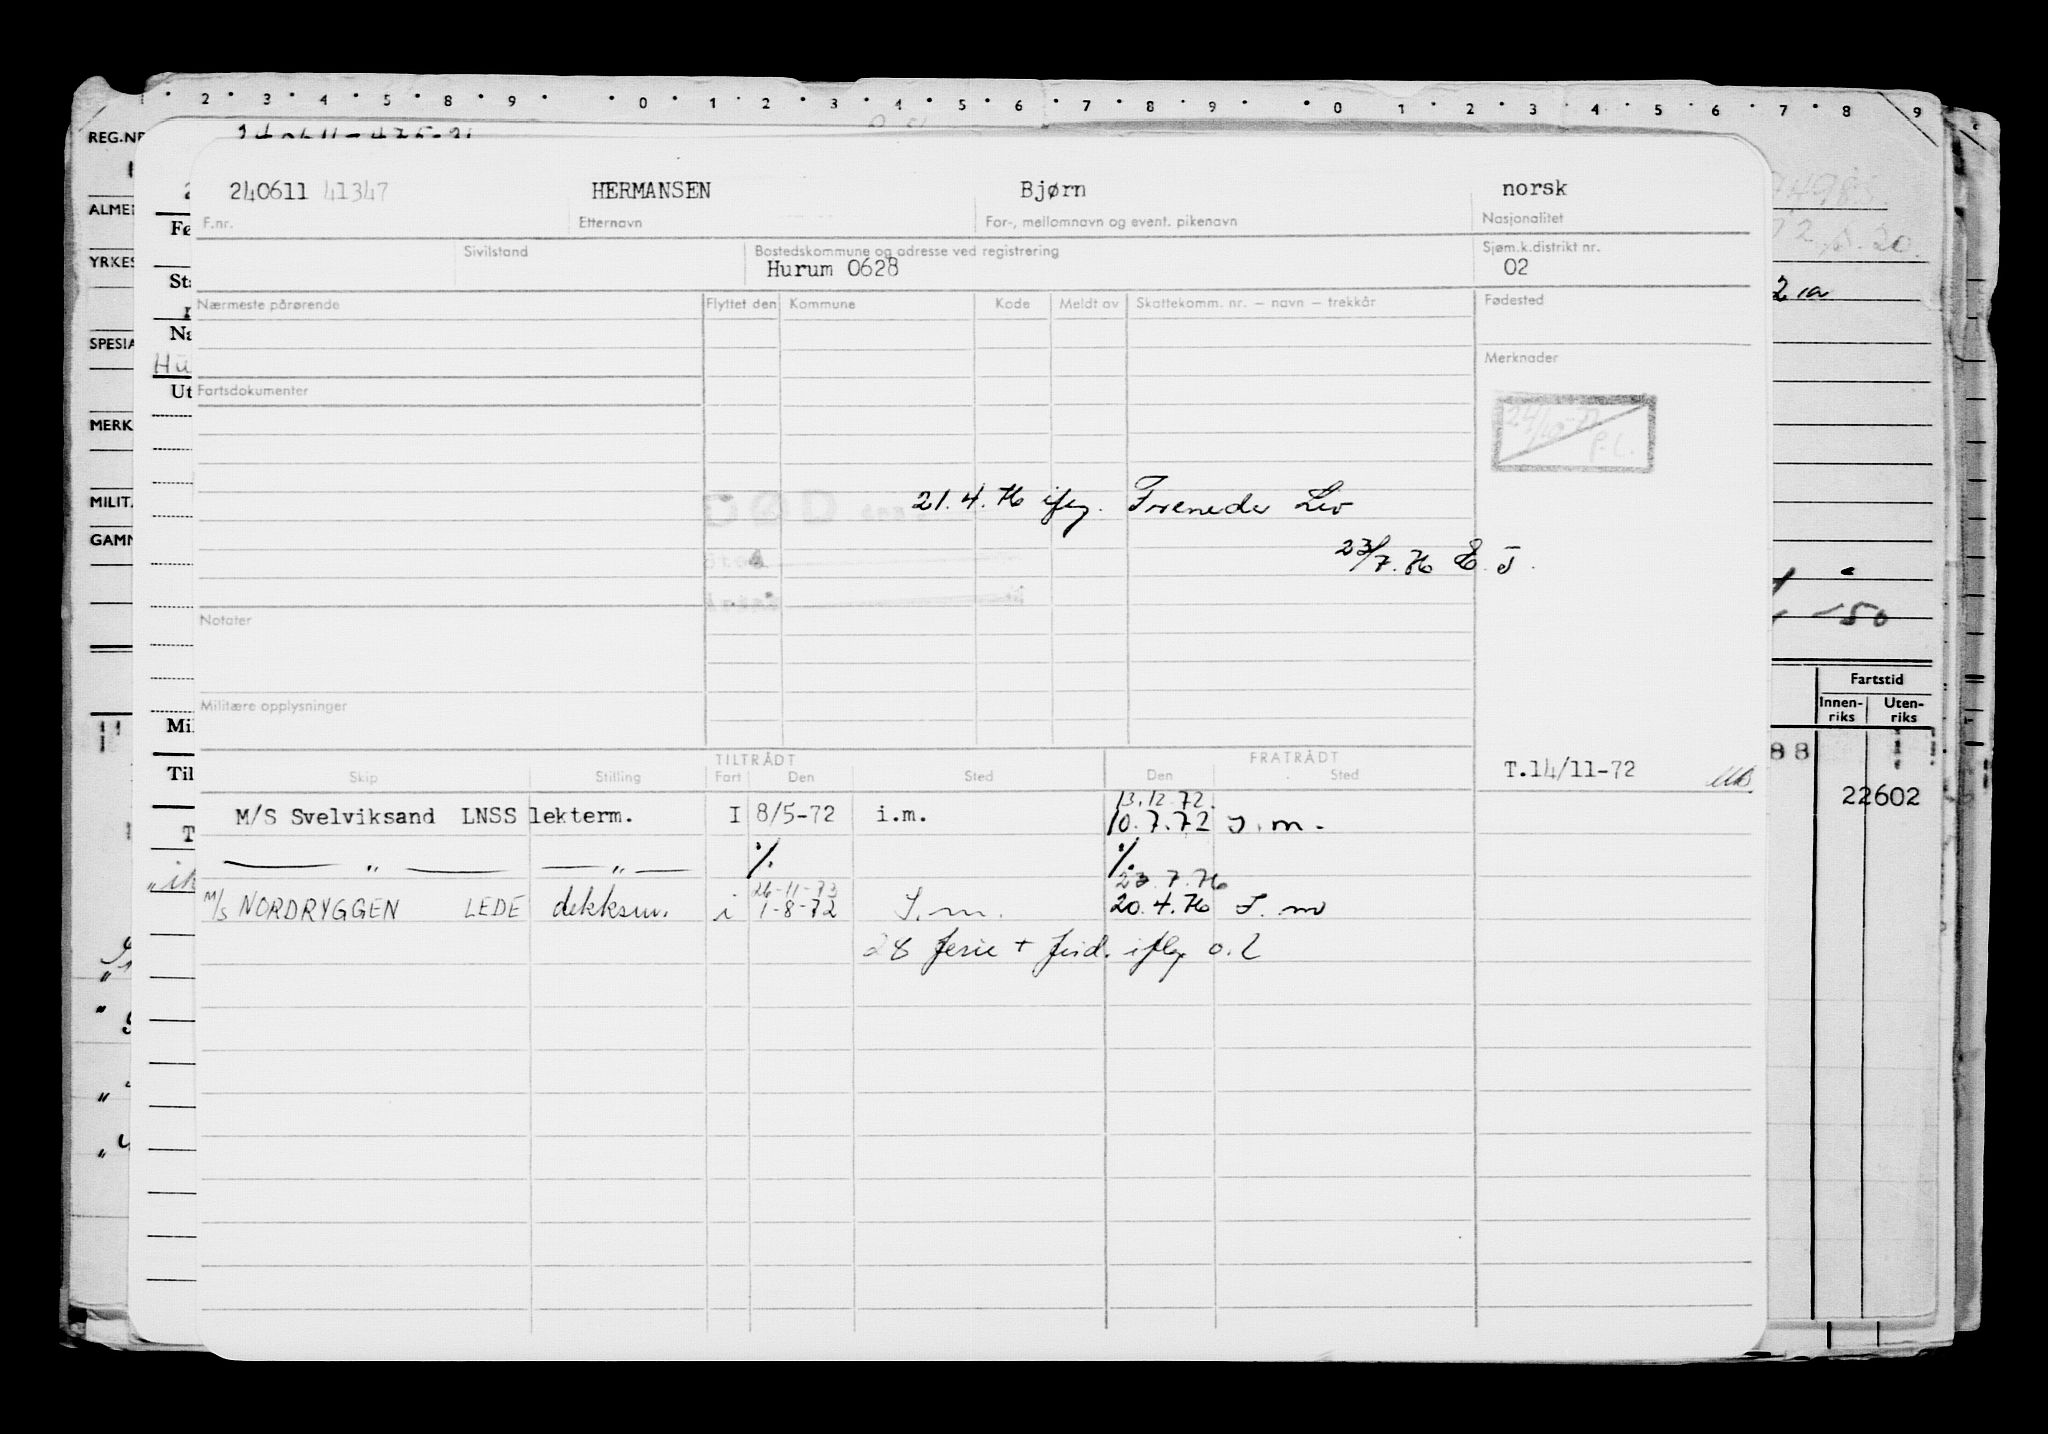 2 3 4 5 8 9 0 1 2 3 4 5 6 7 8 9 0 1 2 3 4 5 6 7 8 9
REG.NR
240611 41347 HERMANSEN Bjørn norsk
F.nr. Etternavn For-, mellomnavn og event. pikenavn Nasjonalitet
ALME
Fø
Sivilstand Bostedskommune og adresse ved registrering Sjøm.k.distrikt nr.
Hurum 0628 02
YRKES
Sta
Nærmeste pårørende Flyttet den Kommune Kode Meldt av Skattekomm. nr. — navn — trekkår Fødested
Na
SPESIA
Merknader
Hu
Ut Fartsdokumenter
24/10-77
P.L.
MERK
MILITÆ
21.4.76 ifлg. Freneder Liv
GAMM
23/7.76 E. T.
-50
Notater
Fartstid
Innen-riks Uten-riks
Militære opplysninger
Mil
88
TILTRÅDT FRATRÅDT
Til Skip Stilling Fart Den Sted Den Sted
T.14/11-72
22602
13.12.72.
M/S Svelviksand LNSS lekterm. I 8/5-72 i.m. 10.7.72 I.m.
— " — — " — % %
26-11-73 23.7.76
M/S NORDRYGGEN LEDE dekksm. i 1-8-72 I.m. 20.4.76 I.m
28 ferie + frid. iflg o.l